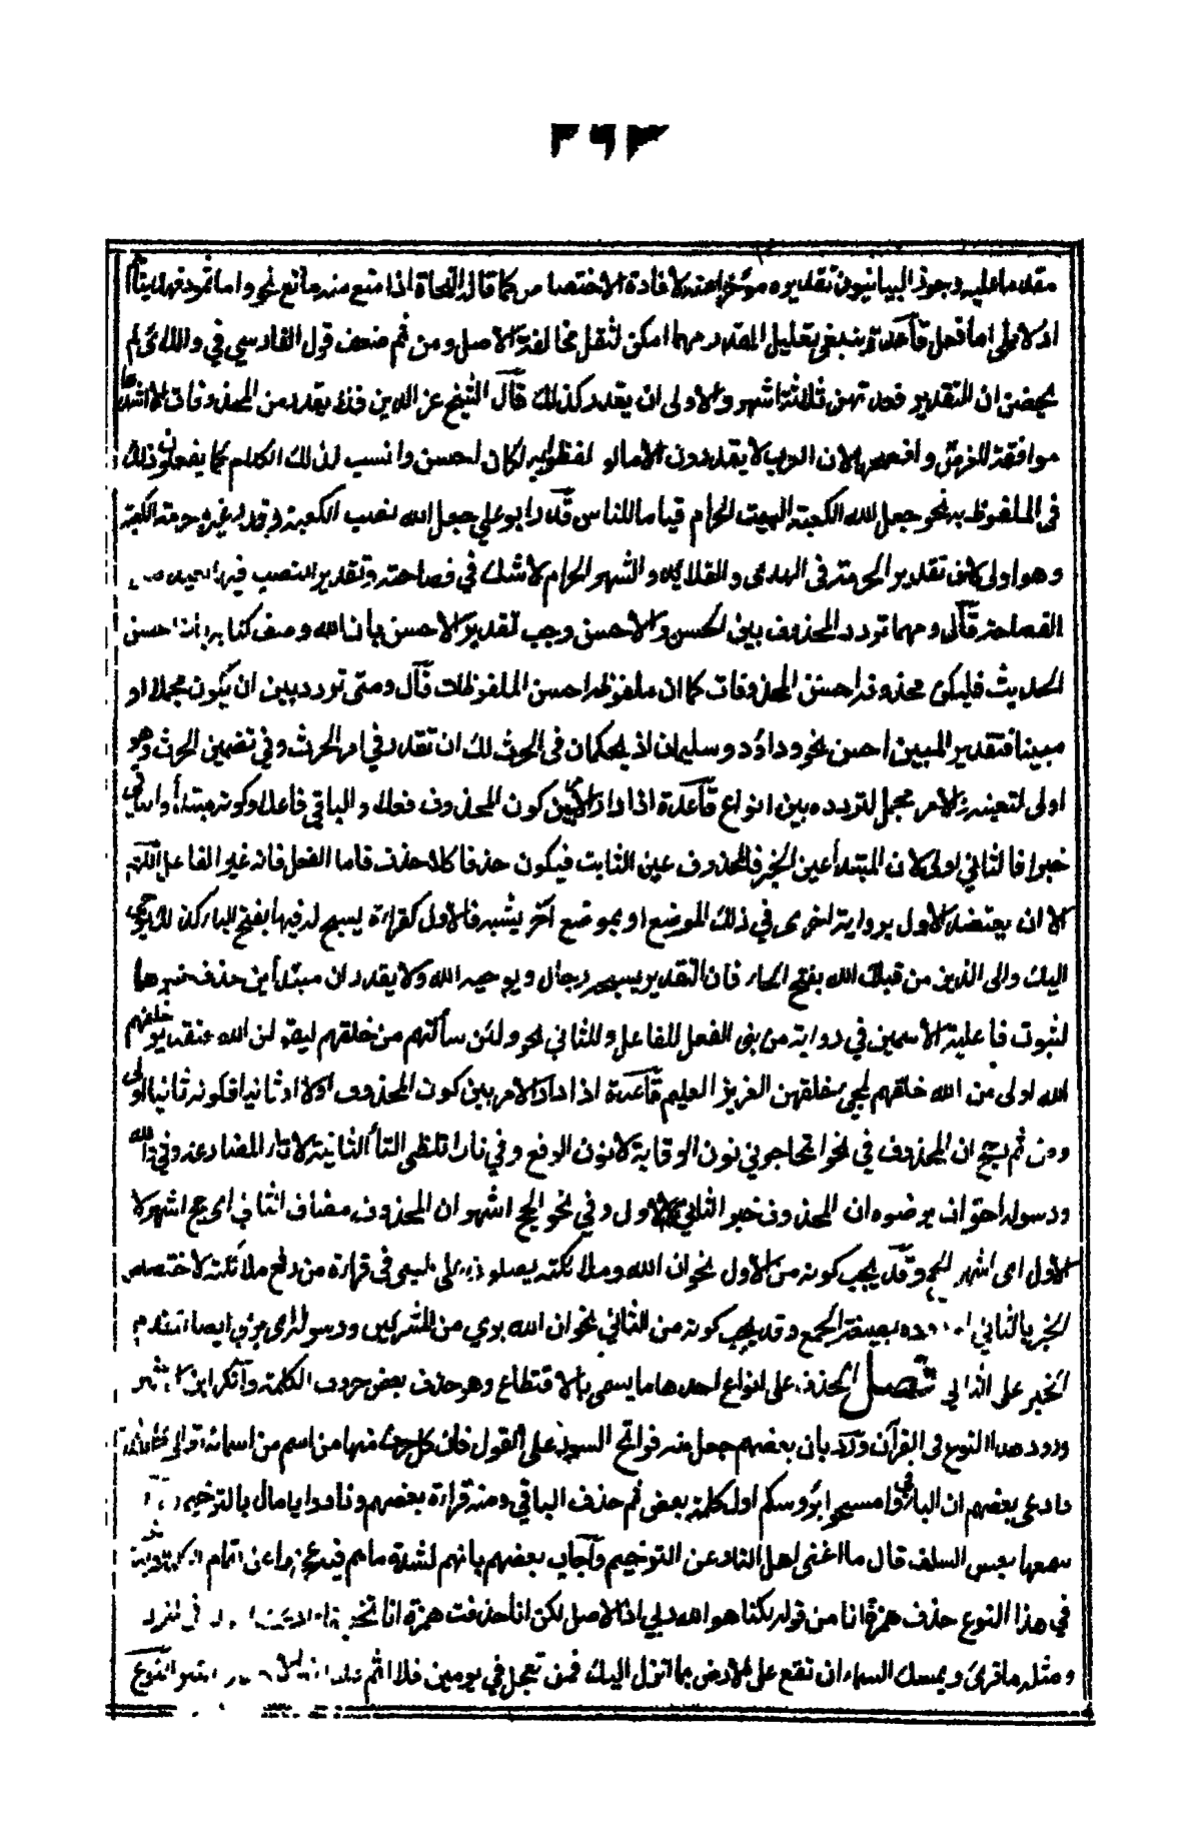 ٣٦٣
مقدما عليه وجوز البيانيون تقديره مؤخرا عنه لافادة الاختصاص كما قاله النحاة اذا منع منه مانع نحو واما ثمود فهديناهم
اذ لا يلى اما فعل قاعدة ينبغى تقليل المقدر مهما امكن لتقل مخالفة الاصل ومن ثم ضعف قول الفارسي في واللائى لم
يحضن ان التقدير فعدتهن ثلاثة اشهر والاولى ان يقدر كذلك قال الشيخ عز الدين ولا يقدر من المحذوفات الا اشدها
موافقة للغرض وافصحها لان العرب لا يقدرون الا ما لو لفظوا به لكان احسن وانسب لذلك الكلام كما يفعلون ذلك
فى الملفوظ به نحو جعل الله الكعبة البيت الحرام قياما للناس قدر ابو علي جعل الله نصب الكعبة وقدر غيره حرمة الكعبة
وهو اولى لان تقدير الحرمة فى الهدى والقلائد والشهر الحرام لا شك في فصاحته وتقدير النصب فيها بعيد من
الفصاحة قال ومهما تردد المحذوف بين الحسن والاحسن وجب تقدير الاحسن لان الله وصف كتابه بانه احسن
الحديث فليكن محذوفه احسن المحذوفات كما ان ملفوظه احسن الملفوظات قال ومتى تردد بين ان يكون مجملا او
مبينا فتقدير المبين احسن نحو وداود وسليمان اذ يحكمان فى الحرث لك ان تقدر في امر الحرث وفي تضمين الحرث وهو
اولى لتعينه والامر مجمل لتردده بين انواع قاعدة اذا دار الامر بين كون المحذوف فعلا والباقي فاعلا وكونه مبتدأ والباقي
خبرا فالثاني اولى لان المبتدأ عين الخبر فالمحذوف عين الثابت فيكون حذفا كلا حذف فاما الفعل فانه غير الفاعل اللهم
الا ان يعتضد الاول برواية اخرى في ذلك الموضع او بموضع آخر يشبهه فالاول كقراءة يسبح له فيها بفتح الباء كذلك يوحى
اليك والى الذين من قبلك الله بفتح الحاء فان التقدير يسبحه رجال ويوحيه الله ولا يقدران مبتدأين حذف خبرهما
لثبوت فاعلية الاسمين في رواية من بنى الفعل للفاعل والثاني نحو ولئن سألتهم من خلقهم ليقولن الله فتقدير خلقهم
الله اولى من الله خلقهم لمجئ خلقهن العزيز العليم قاعدة اذا دار الامر بين كون المحذوف اولا او ثانيا فكونه ثانيا اولى
ومن ثم رجح ان المحذوف في نحو اتحاجوني نون الوقاية لا نون الرفع وفي نارا تلظى التاء الثانية لا تاء المضارعة وفي والله
ورسوله احق ان يرضوه ان المحذوف خبر الثاني لا الاول وفي نحو الحج اشهر ان المحذوف مضاف الثاني اى حج اشهر لا
الاول اى اشهر الحج وقد يجب كونه من الاول نحو ان الله وملائكته يصلون على النبي فى قراءة من رفع ملائكته لاختصاص
الخبر بالثاني لوروده بصيغة الجمع وقد يجب كونه من الثاني نحو ان الله بري من المشركين ورسوله اى برئ ايضا لتقدم
الخبر على الثاني فصل الحذف على انواع احدها ما يسمى بالاقتطاع وهو حذف بعض حروف الكلمة وأنكر ابن الاثير
ورود هذا النوع فى القرآن ورد بان بعضهم جعل منه فواتح السور على القول فان كل حرف منها من اسم من اسمائه تعالى
وادعى بعضهم ان الباء في وامسحوا برؤوسكم اول كلمة بعض ثم حذف الباقي ومنه قراءة بعضهم ونادوا يا مال بالترخيم ولما
سمعها بعض السلف قال ما اغنى اهل النار عن الترخيم وأجاب بعضهم بانهم لشدة ما هم فيه عجزوا عن اتمام الكلمة
في هذا النوع حذف همزة انا من قوله لكنا هو الله ربي اذ الاصل لكن انا حذفت همزة انا
ومثله ما قرئ ويمسك السماء ان تقع على الارض بما انزل اليك فمن تعجل في يومين فلا اثم عليه النوع